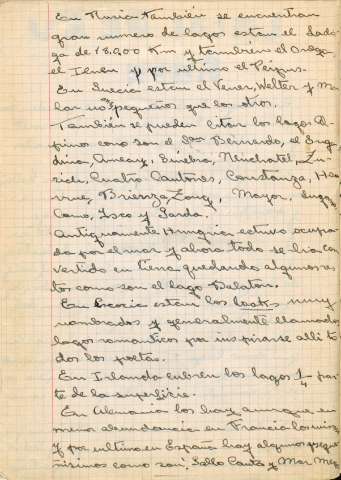 En Rusia también se encuentran
gran numero de lagos estan el Lado
ga de 18,000 Km y tambien el Onega
el Ilmen y por ultimo el Peipus.
En Suecia estan el Vener, Welter y Me
lar mas pequeños que los otros.
Tambien se pueden citar los lagos Al
pinos como son el San Bernardo, el En
dina, Annecy, Ginebra, Neuchatel, Zu
rich, Cuatro Cantones, Constanza,
Brienz, Zoug, Mayor,
Como, Iseo y Garda.
Antiguamente Hungria estuvo ocupa
da por el mar y ahora todo se ha con
vertido en tierra quedando algunos res
tos como son el lago Balaton.
En Escocia estan los muy
nombrados y generalmente llamados
lagos romanticos por inspirarse alli to
dos los poetas.
En Irlanda cubren los lagos 1/4 par
te de la superficie.
En Alemania los hay aunque en
menor abundancia en Francia
y por ultimo en España hay algunos peque
ñisimos como son: Gallo Canta y Mar Me